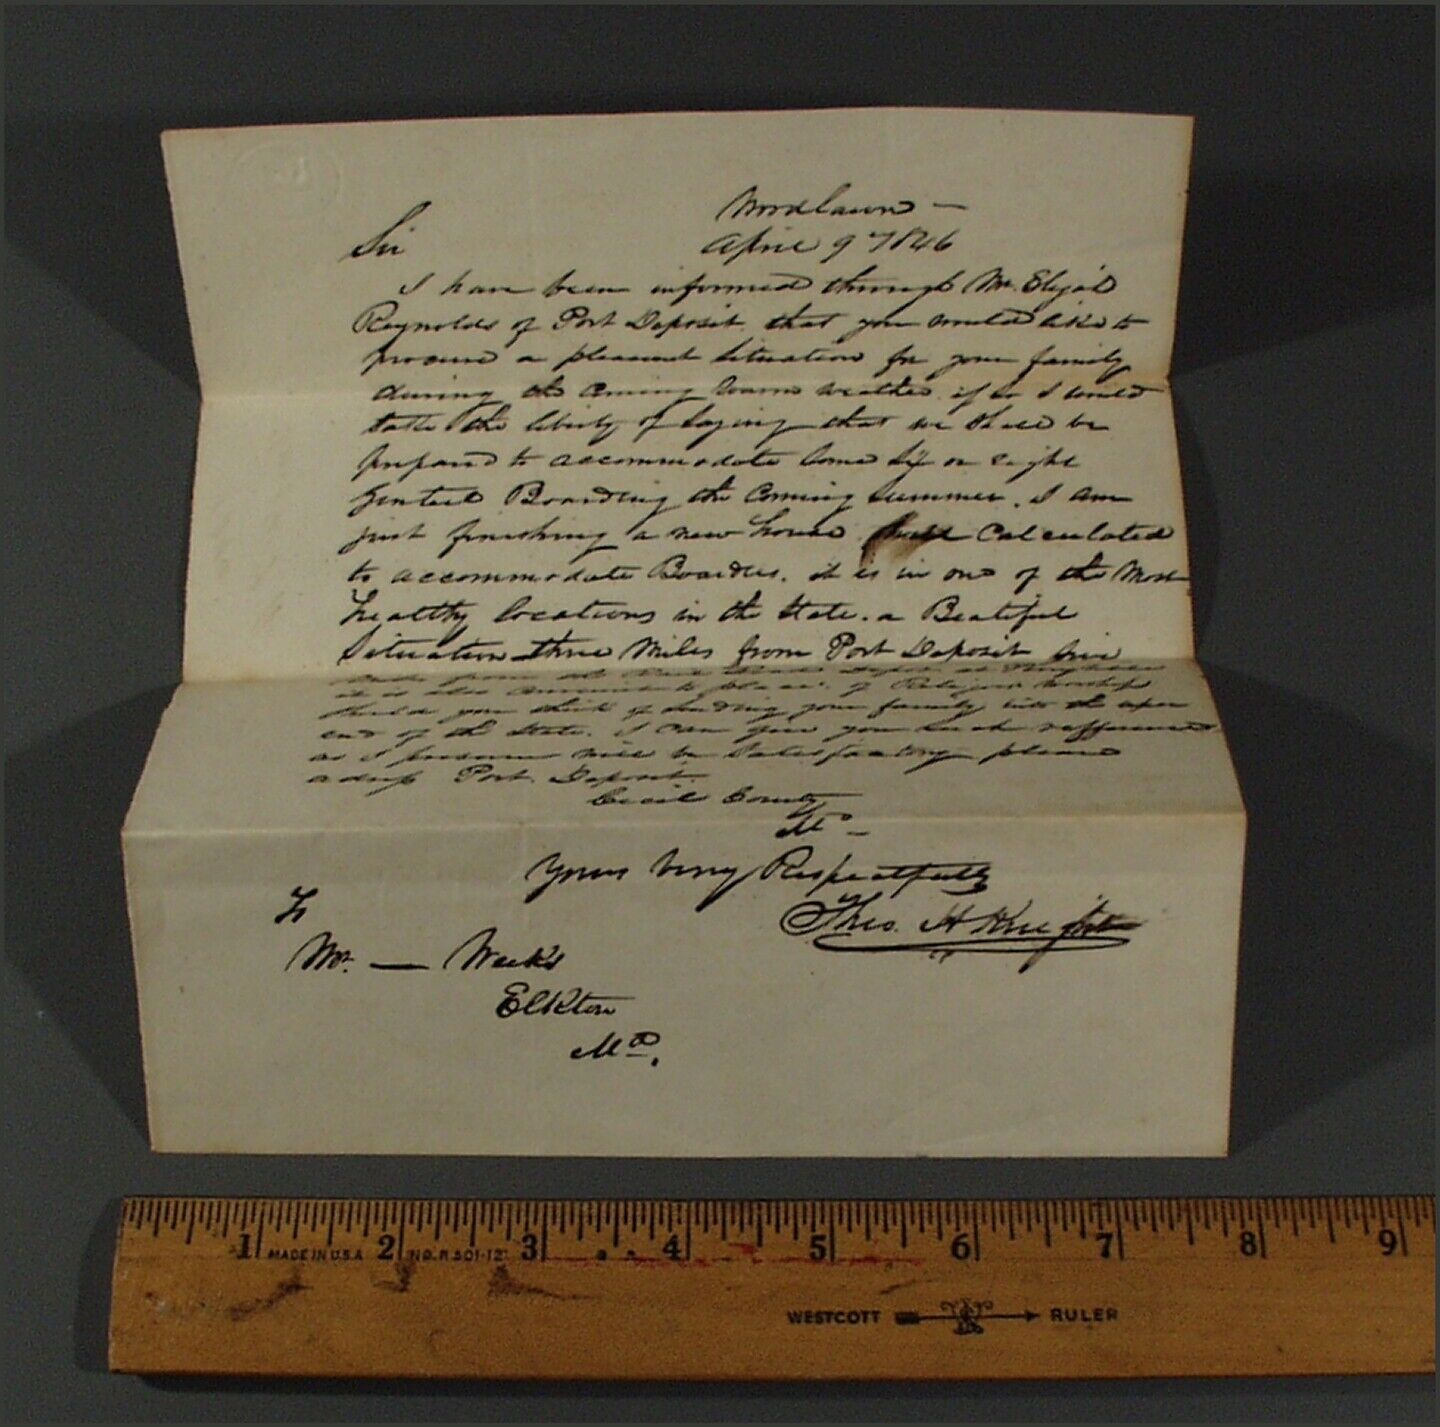 Woodlawn —
April 9th 1846
Sir
I have been informed through Mr. Elijah
Reynolds of Port Deposit that you would like to
procure a pleasant Situation for your family
during the coming warm weather. if so I would
take the liberty of saying that we shall be
prepared to accommodate some six or eight
genteel Boarding the Coming Summer. I am
just finishing a new house Calculated
to accommodate Boarders. it is in one of the Most
healthy locations in the State. a Beatiful
Situation three Miles from Port Deposit five
Miles from the
it is also convenient to places of Religious Worship
should you think of sending your family into the upper
end of the State. I can give you such refference
as I presume will be Satisfactory please
adress Port Deposit.
Cecil County
Md —
Yours Very Respectfully
Theo. H Knight
To
Mr. — Weeks
Elkton
Md.
1 2 3 4 5 6 7 8 9
MADE IN U.S.A NO. R 501-12
WESTCOTT RULER